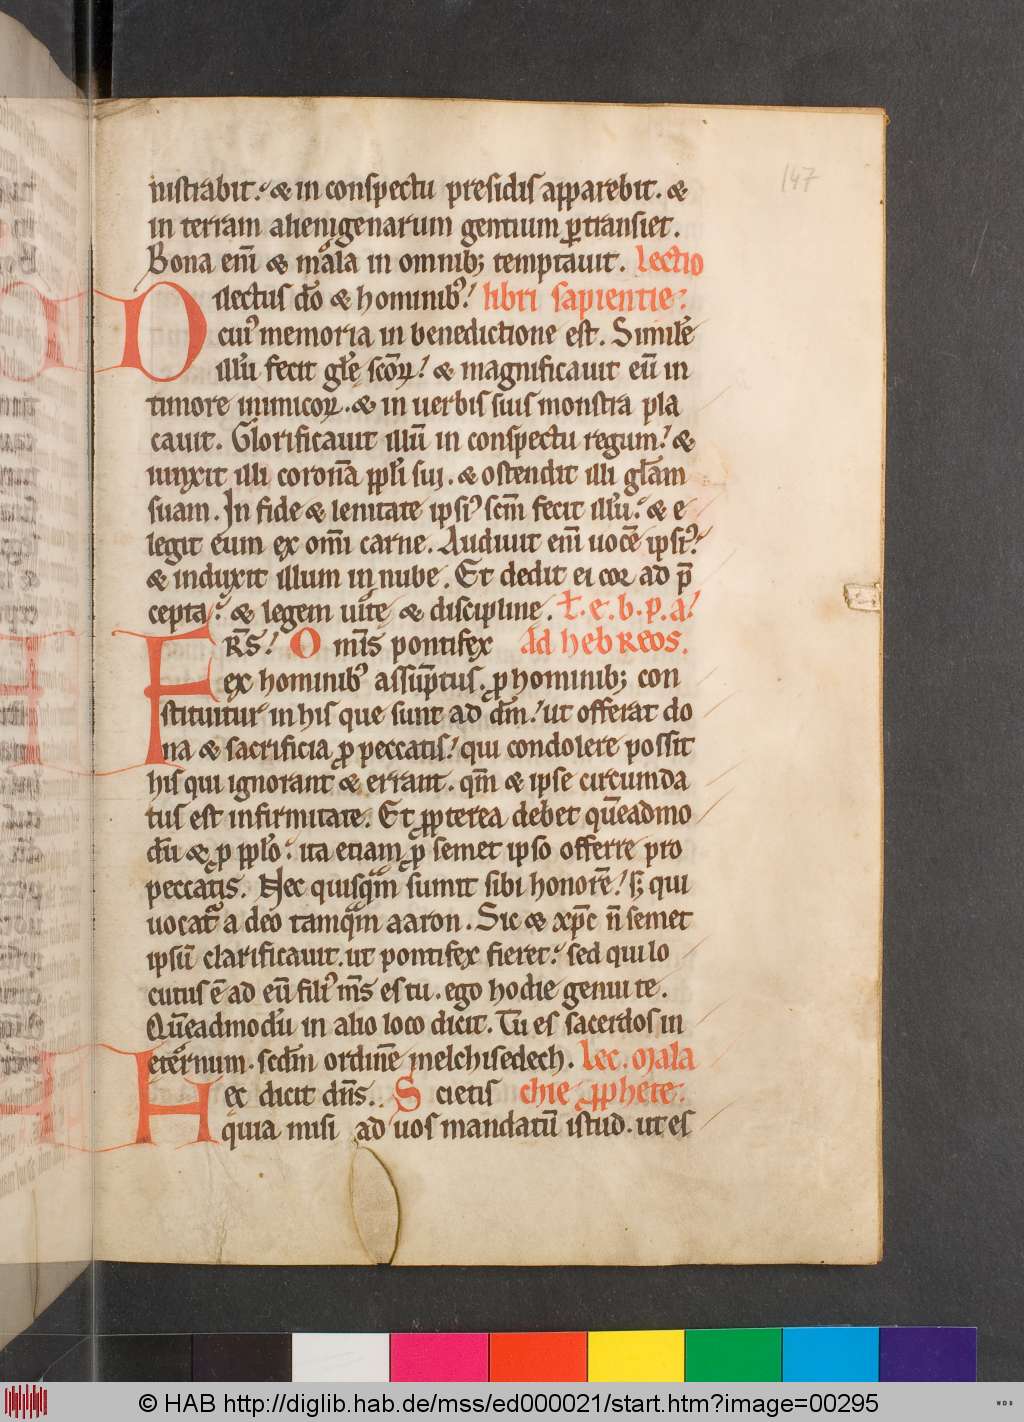 147
nistrabit. & in conspectu presidis apparebit. &
in terram alienigenarum gentium ꝑtransiet.
Bona eni̅ & mala in omnib; temptauit. Lectio
Dilectus do̅ & hominibꝰ! libri sapientie:
cuiꝰ memoria in benedictione est. Simile̅
illu̅ fecit gl̅e sc̅oꝝ! & magnificauit eu̅ in
timore inimicoꝝ. & in uerbis suis monstra pla
cauit. Glorificauit illu̅ in conspectu regum! &
iunxit illi corona̅ pp̅li sui. & ostendit illi gl̅am
suam. In fide & lenitate ipsiꝰ sc̅m fecit illu̅. & e
legit eum ex om̅i carne. Audiuit eni̅ uoce̅ ipsiꝰ.
& induxit illum in nube. Et dedit ei cor ad p̅
cepta. & legem uite & discipline. L. e. b. p. a!
FRS̅! Om̅is pontifex Ad hebreos.
ex hominibꝰ assu̅ptus. ꝓ hominib; con
stituitur in his que sunt ad dm̅! ut offerat do
na & sacrificia ꝓ peccatis! qui condolere possit
his qui ignorant & errant. qm̅ & ipse circumda
tus est infirmitate. Et ꝓpterea debet que̅admo
du̅ & ꝓ pp̅lo. ita etiam ꝓ semet ipso offerre pro
peccatis. Nec quisqͣm sumit sibi honore̅! s; qui
uocatᷣ a deo tamqͣm aaron. Sic & xp̅c n̅ semet
ipsu̅ clarificauit. ut pontifex fieret. sed qui lo
cutus e̅ ad eu̅ filiꝰ m̅s es tu. ego hodie genui te.
Que̅admodu̅ in alio loco dicit. Tu es sacerdos in
eternum. scd̅m ordine̅ melchisedech. Lec. mala
Hec dicit dn̅s. Scietis chie ꝓphete.
quia misi ad uos mandatu̅ istud. ut es
© HAB http://diglib.hab.de/mss/ed000021/start.htm?image=00295